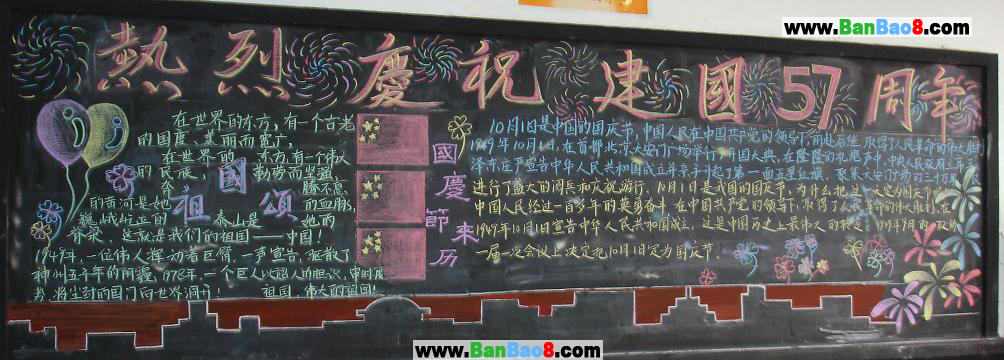 www.BanBao8.com
熱烈慶祝建國57周年
在世界的东方，有一个古老
的国度、美丽而宽广，
在世界的东方有一个伟大
的民族，勤劳而坚强，
國
祖頌
奔腾不息
的黄河是她的血脉，
巍峨屹立的泰山是她的
脊梁、这就是我们的祖国——中国！
1949年，一位伟人挥动着巨臂，一声宣告，驱散了
神州五千年的阴霾，1978年，一个巨人以超人的胆识，审时度
势，将尘封的国门向世界洞开！祖国，伟大的祖国！
國慶節来历
10月1日是中国的国庆节，中国人民在中国共产党的领导下，前赴后继，取得了人民革命的伟大胜利
1949年10月1日，在首都北京天安门广场举行了开国大典，在隆隆的礼炮声中，中央人民政府主席毛
泽东庄严宣告中华人民共和国成立并亲手升起了第一面五星红旗。聚集天安门广场的三十万军民
进行了盛大的阅兵和庆祝游行。10月1日是我国的国庆节，为什么把这一天定为国庆节呢？
中国人民经过一百多年的英勇奋斗，在中国共产党的领导下，取得了人民革命的伟大胜利，在
1949年10月1日宣告中华人民共和国成立，这是中国历史上最伟大的转变。1949年9月的政协
一届一次会议上决定把10月1日定为国庆节。
www.BanBao8.com